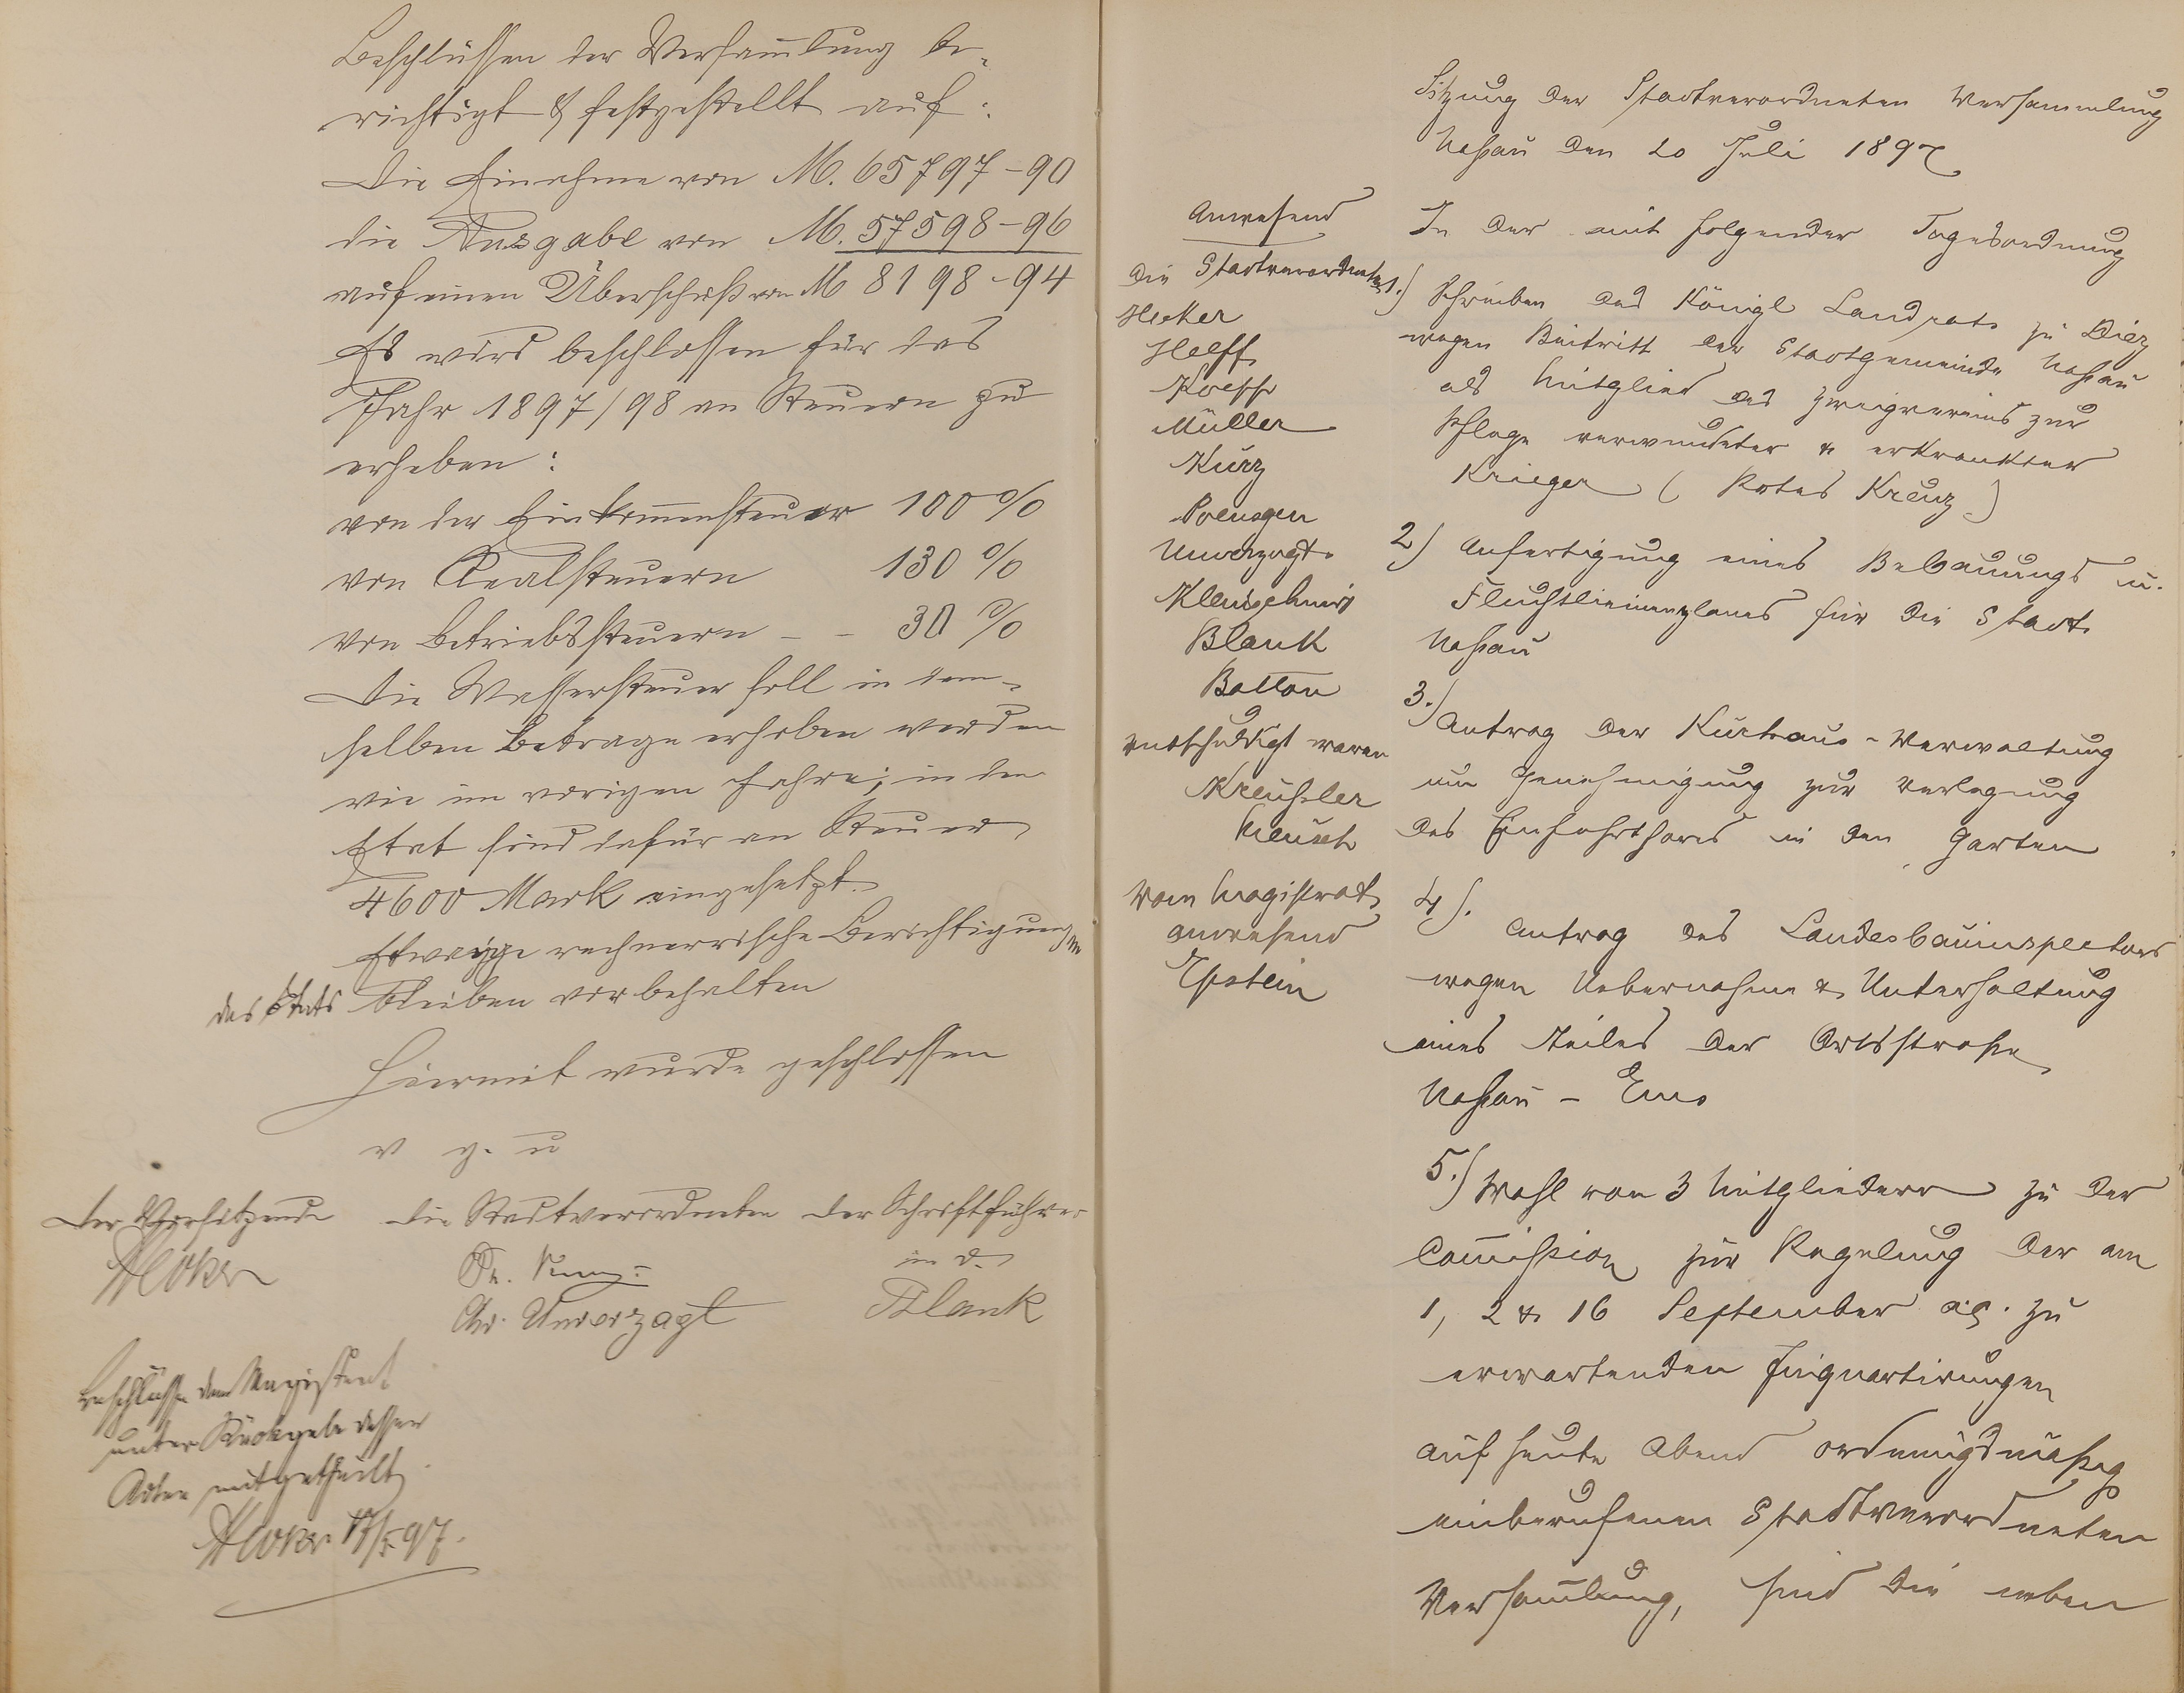 Beschlüssen der Versam̅lung be-
richtigt & festgestellt auf:
Die Einnahme von M. 65797-90
die Ausgabe von M. 57598-96
auf einen Überschuß von M 8198-94
Es wird beschlossen für das
Jahr 1897/98 an Steuern zu
erheben:
von der Einkom̅ensteuer 100%
von Realsteuern 130%
von Betriebssteuern - - 30%
Die Wassersteuer soll in dem-
selben Betrage erhoben werden
wie im vorigen Jahre; in den
Etat sind dafür an Steuer
4600 Mark eingesetzt.
Etwaige rechnerische Berichtigungen
des Etats bleiben vorbehalten
Hiermit wurde geschlossen
v g. u
Der Vorsitzende
die Stadtverordneten
der Schriftführer
Chr. Unverzagt
Blank
Beschlüsse dem Magistrat
unter Rückgabe dessen
Acten mitgetheilt
17/5 97.
Sitzung der Stadtverordneten Versammlung
Naßau den 20 Juli 1897
Anwesend
Die Stadtverordneten
Helff
Müller
Kurz
Poensgen
Unverzagt
Kleinschmidt
Blank
Balton
entschuldigt waren
Kreuseler
Meusch
Vom Magistrat
anwesend
Epstein
In der mit folgender Tagesordnung
1.) Schreiben des Königl Landrats zu Diez
wegen Beitritt der Stadtgemeinde Naßau
als Mitglied des Zweigvereins zur
Pflege verwundeter & erkrankter
Krieger (Rotes Kreuz)
2) Anfertigung eines Bebauungs u.
Fluchtlinienplanes für die Stadt
Naßau
3.) Antrag der Kurhaus-Verwaltung
um Genehmigung zur Verlegung
des Einfahrthores in den Garten
4). Antrag des Landesbauinspectors
wegen Uebernahme & Unterhaltung
eines Teiles der Ortsstraße
Naßau - Ems
5.) Wahl von 3 Mitgliedern zu der
Com̅ission zur Regelung der am
1, 2 & 16 September a.c. zu
erwartenden Einquartirungen
auf heute Abend ordnungsmäßig
einberufenen Stadtverordneten
Versam̅lung, sind die neben